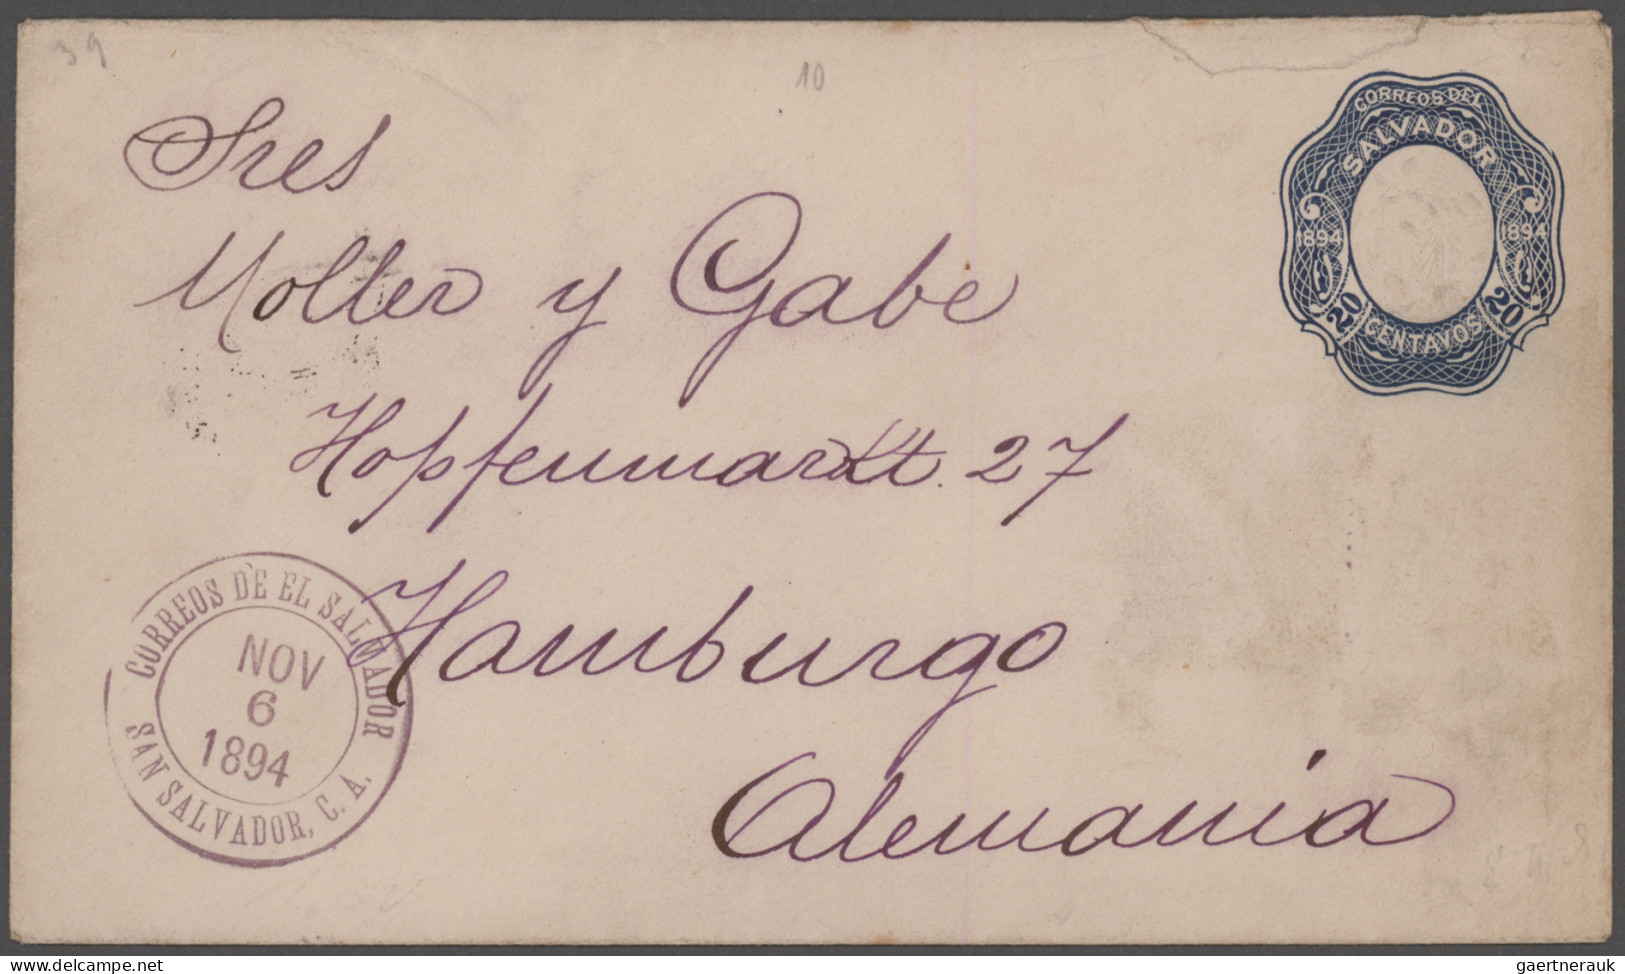 39
10
CORREOS DEL
SALVADOR
1894 1894
20 CENTAVOS 20
Sres
Moller y Gabe
Hopfenmarkt. 27
Hamburgo
Alemania
CORREOS DE EL SALVADOR
NOV
6
1894
SAN SALVADOR, C. A.
www.delcampe.net
gaertnerauk